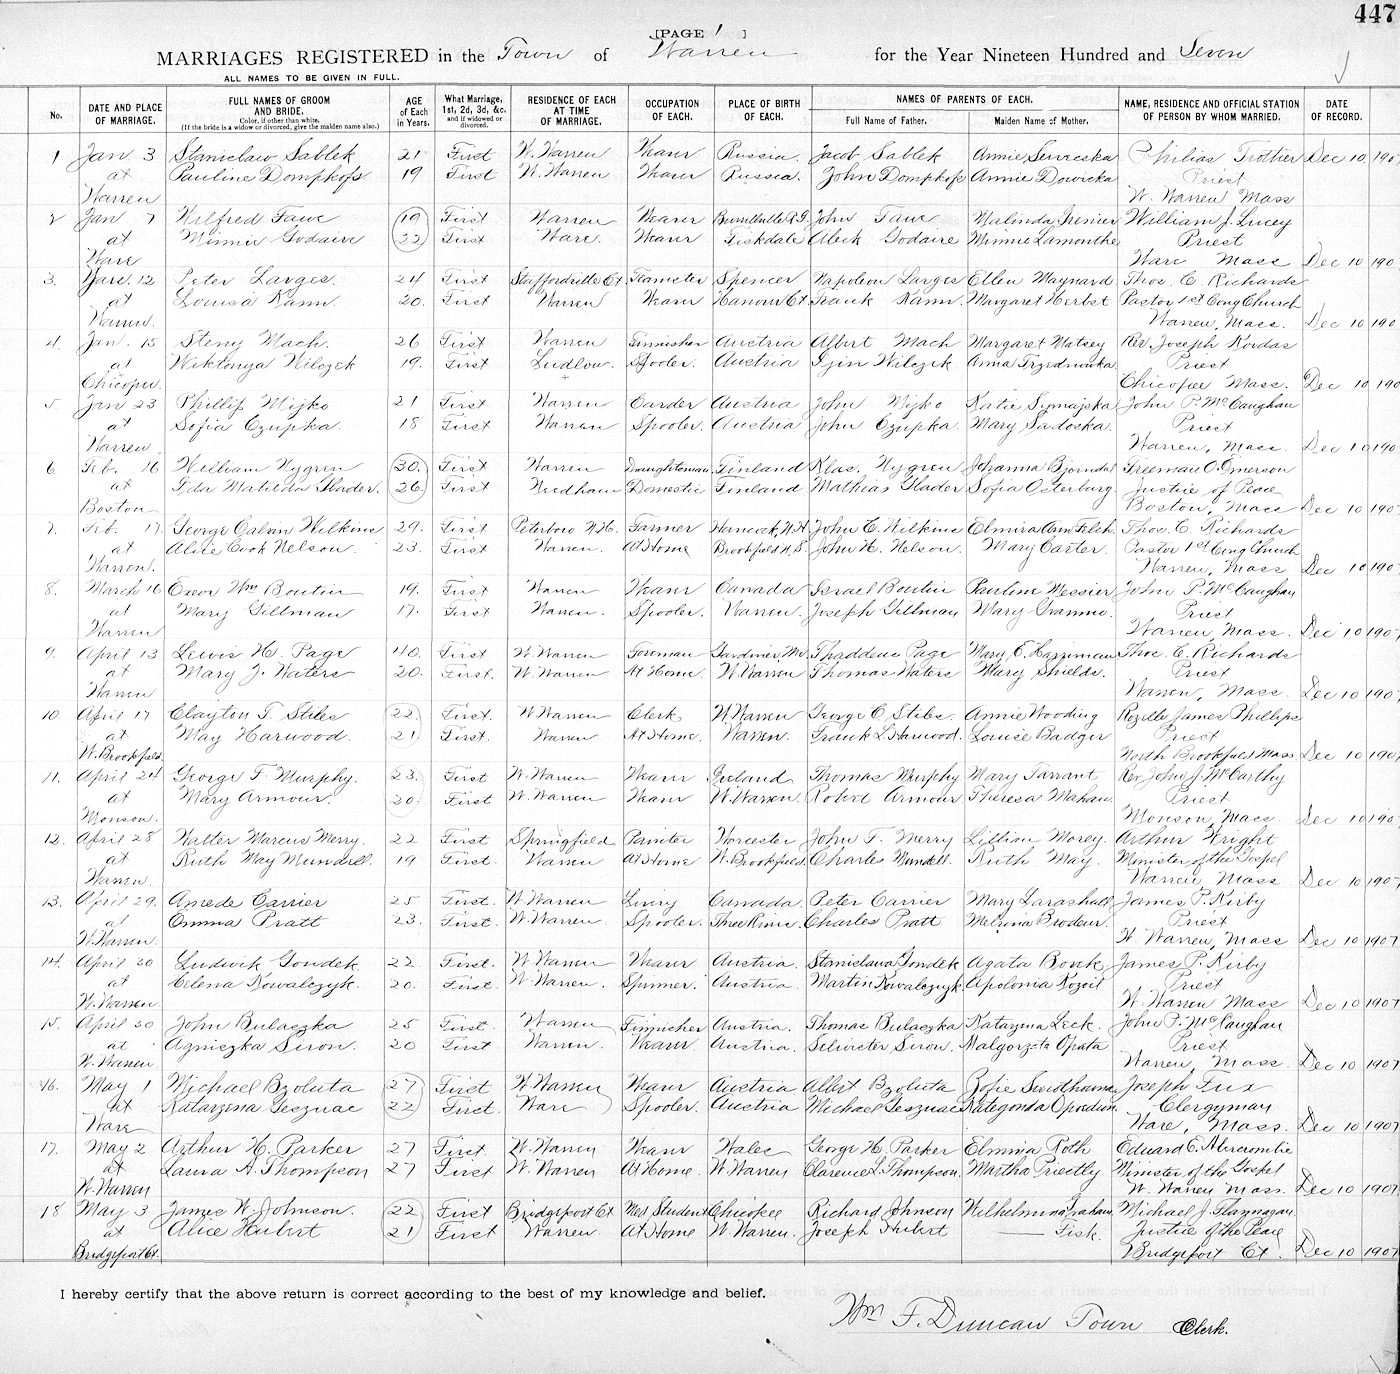 447
[PAGE 1 ]
MARRIAGES REGISTERED in the Town of Warren for the Year Nineteen Hundred and Seven
ALL NAMES TO BE GIVEN IN FULL.
No. DATE AND PLACE OF MARRIAGE. FULL NAMES OF GROOM AND BRIDE. Color, if other than white. (If the bride is a widow or divorced, give the maiden name also.) AGE of Each in Years. What Marriage, 1st, 2d, 3d, &c. and if widowed or divorced. RESIDENCE OF EACH AT TIME OF MARRIAGE. OCCUPATION OF EACH. PLACE OF BIRTH OF EACH. NAMES OF PARENTS OF EACH. Full Name of Father. Maiden Name of Mother. NAME, RESIDENCE AND OFFICIAL STATION OF PERSON BY WHOM MARRIED. DATE OF RECORD.
1 Jan 3 Stanislaw Sablek 21 First W. Warren Weaver Russia Jacob Sablek Annie Philias Trottier Dec 10 190
at Pauline Dompkofs 19 First W. Warren Weaver Russia. John Dompkofs Annie Dowicka Priest
Warren W. Warren Mass
2 Jan 7 Wilfred Fawc 19 First Warren Weaver Burrillville R.I. John Fawc Malinda William J. Lucey
at Minnie Godaire 22 First Ware. Weaver Fiskdale Aleck Godaire Minnie Lamonthe Priest
Ware Ware Mass Dec 10 190
3. Jan. 12 Peter Larges. 24 First Staffordville Ct. Teamster Spencer Napoleon Larges Ellen Maynard Thos. C Richards
at Louisa Kann. 20. First Warren Weaver Hanover Ct. Frank Kann. Margaret Herbst Pastor 1st Cong Church
Warren. Warren, Mass. Dec 10 190
4. Jan. 15 Steny Mach. 26 First Warren Finisher Austria Albert Mach Margaret Matsey Rev. Joseph Kordas
at Wiktonya Wilczek 19. First Ludlow. Spooler. Austria Wilczek Anna Priest
Chicopee. Chicopee Mass. Dec 10 190
5. Jan 23 Phillip Mijko 21 First Warren Carder Austria John Mijko Katie Symajska John P. McCaughan
at Sofia Czupka. 18 First Warren Spooler. Austria John Czupka. Mary Sadoska. Priest
Warren. Warren, Mass. Dec 10 190
6 Feb. 16 William Nygren 30. First Warren Draughtsman Finland Klas. Nygren Johanna Bjorndal Freeman O. Emerson
at Ida Matilda Glader. 26. First Needham Domestic Finland Mathias Glader Sofia Osterburg. Justice of Peace
Boston Boston, Mass Dec 10 190
7. Feb. 17 George Calvin Wilkins 29. First Peterboro N.H. Farmer Hancock, N.H. John C. Wilkins Elmira Ann Felch. Thos. C. Richards
at Alice Cook Nelson. 23. First Warren. At Home Brookfield N.S. John H. Nelson. Mary Carter. Pastor 1st Cong Church
Warren. Warren, Mass Dec 10 190
8. March 16 Exeor Wm Boutin 19. First Warren Weaver Canada Israel Boutin Pauline Messier John P. McCaughan
at Mary Gillman 17. First Warren. Spooler. Warren. Joseph Gillman Mary Priest
Warren Warren, Mass. Dec 10 190
9. April 13 Lewis H. Page 40. First W. Warren Foreman Gardiner, Me. Thaddeus Page Mary E. Harriman Thos. C. Richards
at Mary J. Waters 20. First. W. Warren At Home W. Warren Thomas Waters Mary Shields. Priest
Warren Warren, Mass. Dec 10 190
10. April 17 Clayton T. Stiles 22. First. W. Warren Clerk W. Warren George C. Stiles. Annie Wooding Rozelle James Phillips
at May Harwood. 21. First. Warren At Home. Warren. Frank L. Harwood. Louise Badger Priest
W. Brookfield. North Brookfield Mass Dec 10 190
11. April 24 George F. Murphy. 23. First W. Warren Weaver Ireland Thomas Murphy Mary Tarrant Rev John J. McCarthy
at Mary Armour. 20. First W. Warren Weaver W. Warren. Robert Armour Theresa Mahan. Priest
Monson. Monson, Mass. Dec 10 190
12. April 28 Walter Marcus Merry. 22 First Springfield Painter Worcester John F. Merry Lillian Morey. Arthur Wright
at Ruth May Mundell. 19 First. Warren At Home W. Brookfield. Charles Mundell. Ruth May. Minister of the Gospel
Warren. Warren, Mass Dec 10 190
13. April 29. Amede Carrier 25 First. W. Warren Livery Canada. Peter Carrier Mary James P. Kirby
at Emma Pratt 23. First. W. Warren Spooler. Three Rivers. Charles Pratt Melvina Brodeur. Priest
W. Warren. W. Warren, Mass Dec 10 1907
14. April 30 Ludwik Gondek 22 First. W Warren Weaver Austria. Stanislawa Gondek Agata Bocek James P. Kirby
at Elena Kowalczyk. 20. First. W. Warren. Spinner. Austria. Martin Kowalczyk Apolonia Koziol Priest
W. Warren W. Warren Mass Dec 10 1907
15. April 30 John Bulaczka 25 First. Warren Finisher Austria. Thomas Bulaczka Katarzyna Leck. John P. McCaughan
at Agniczka Siron. 20 First Warren. Weaver Austria. Silvester Siron. Malgorzata Opata Priest
W. Warren Warren, Mass. Dec 10 1907
16. May 1 Michael Bzoluta 27 First W. Warren Weaver Austria Albert Bzoluta Zofie Joseph Fux
at Katarzina Tesznac 22 First. Ware Spooler. Austria Michael Tesznac Kategonda Clergyman
Ware Ware, Mass. Dec 10 1907
17. May 2 Arthur H. Parker 27 First W. Warren Weaver Wales George H. Parker Elmina Roth Edward E. Abercrombie
at Laura A. Thompson 27 First W. Warren At Home W. Warren Clarence L. Thompson. Martha Priestly Minister of the Gospel
W. Warren W. Warren Mass. Dec 10 1907
18 May 3 James W. Johnson. 22 First Bridgeport Ct Med. Student Chicopee Richard Johnson Wilhelmina Graham Michael J. Flannagan
at Alice Hubert 21 First Warren. At Home W. Warren. Joseph Hubert — Fisk. Justice of the Peace
Bridgeport Ct. Bridgeport Ct. Dec 10 1907
I hereby certify that the above return is correct according to the best of my knowledge and belief.
Wm F. Duncan Town Clerk.